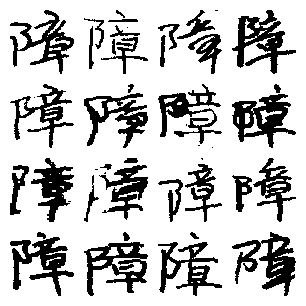 障障障障
障障障障
障障障障
障障障障